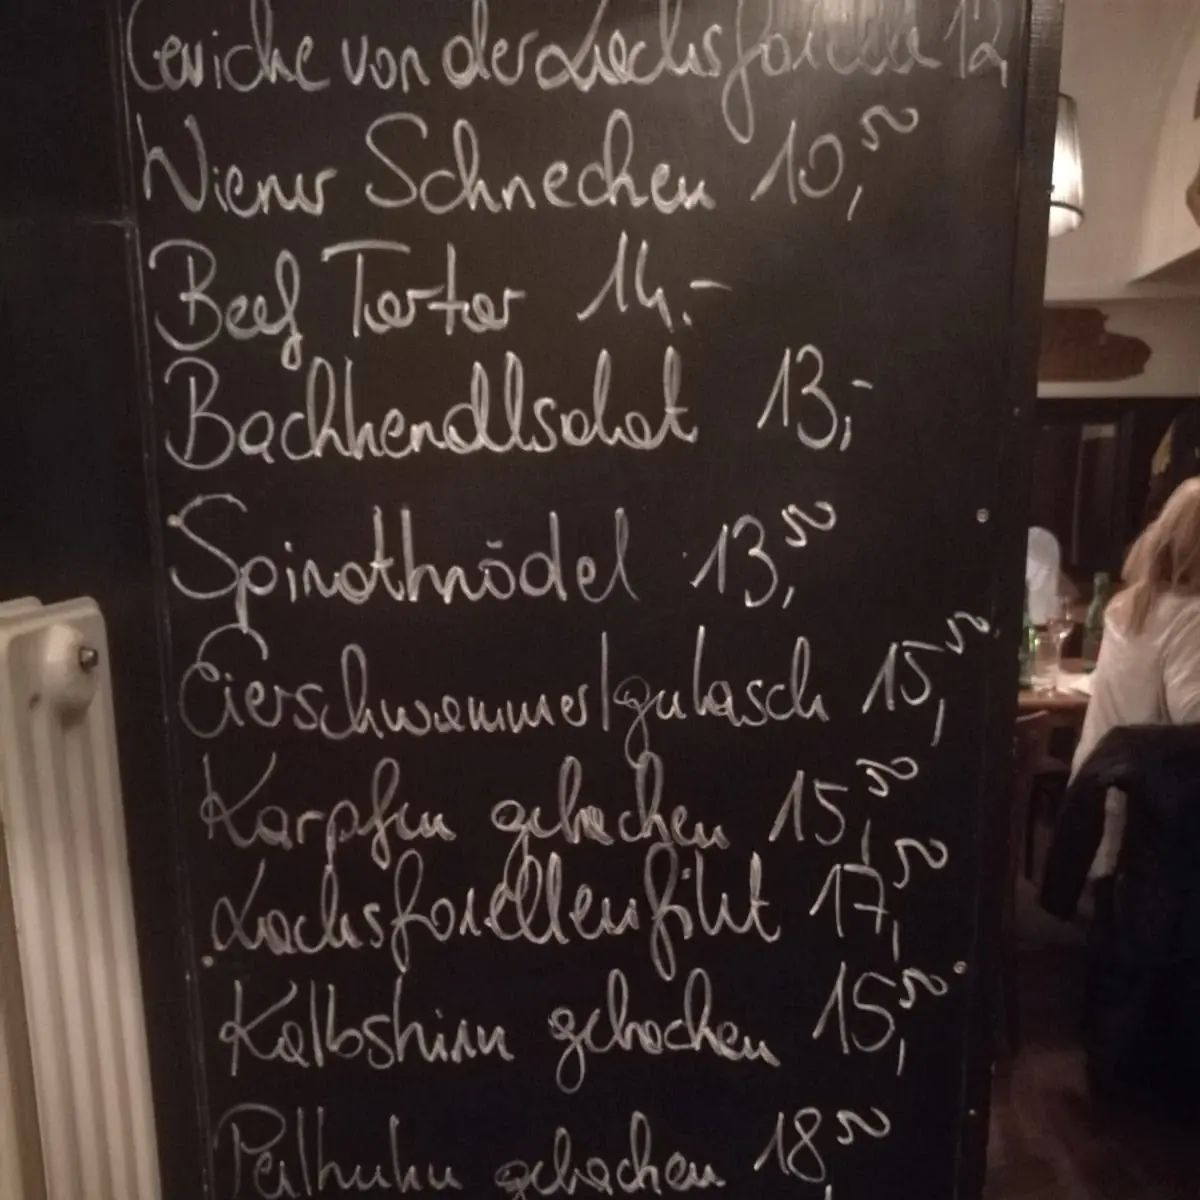 Ceviche von der Lachsforelle 12,
Wiener Schnecken 10,50
Beef Tartar 14,-
Backhendlsalat 13,-
Spinatknödel 13,50
Eierschwammerlgulasch 15,50
Karpfen gebacken 15,50
Lachsforellenfilet 17,50
Kalbshirn gebacken 15,50
Perlhuhn gebacken 18,50